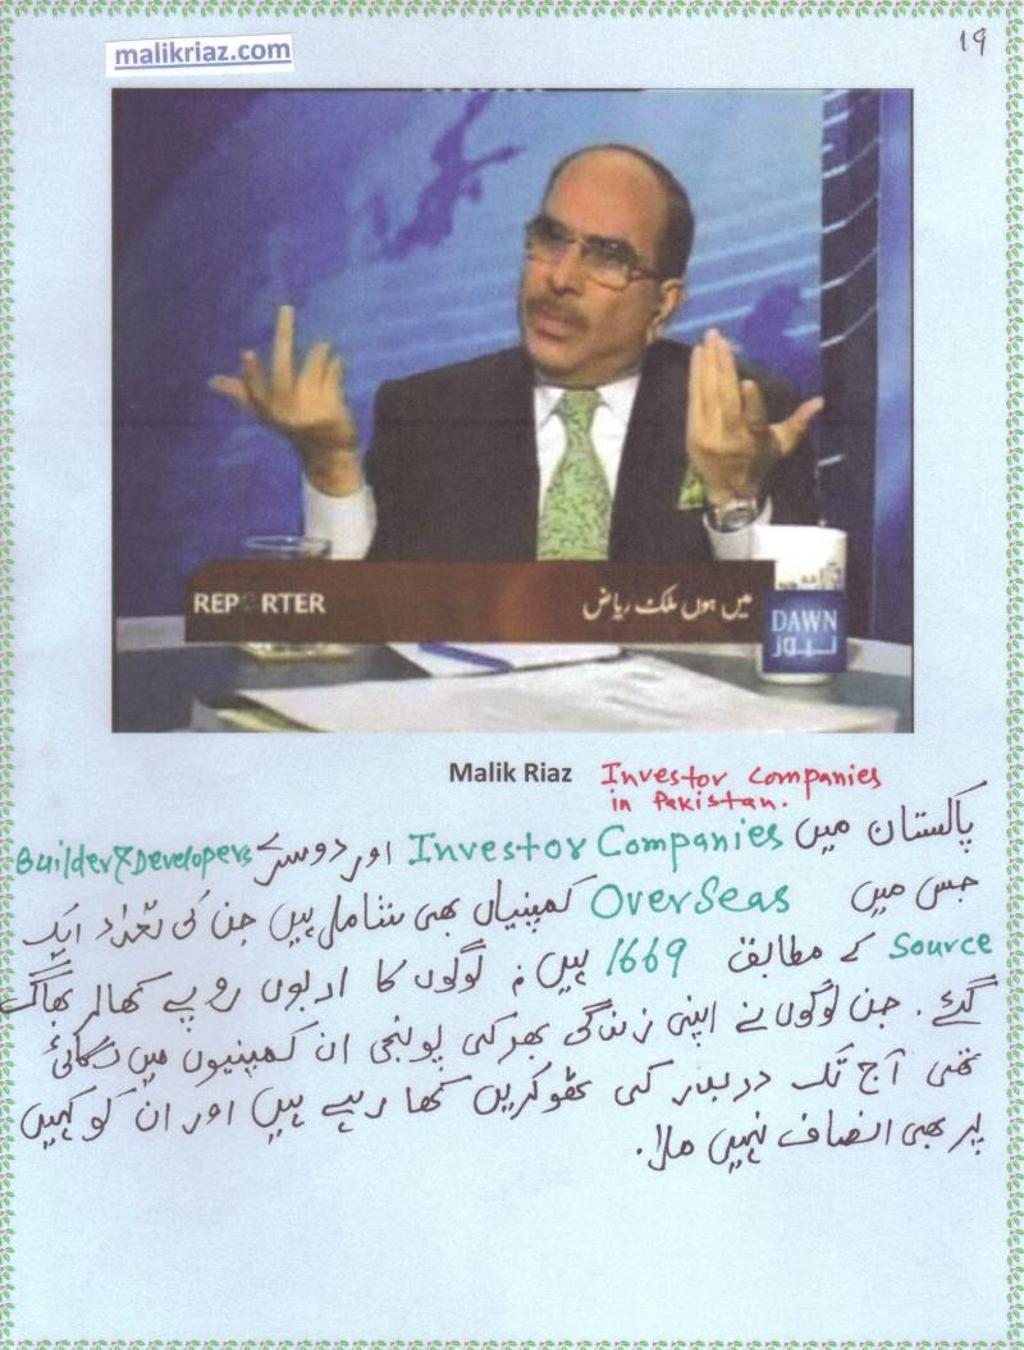 malikriaz.com
19
REPORTER
میں ہوں ملک ریاض
DAWN
نیوز
Malik Riaz Investor Companies
in Pakistan.
پاکستان میں Investor Companies اور دوسرے Builder & Developers
جس میں OverSeas کمپنیاں بھی شامل ہیں جن کی تعداد ایک
Source کے مطابق 1669 ہیں لوگوں کا اربوں روپے کھاکر بھاگ
گئے۔ جن لوگوں نے اپنی زندگی بھر کی پونجی ان کمپنیوں میں لگائی
تھی آج تک دربدر کی ٹھوکریں کھا رہے ہیں اور ان کو کہیں
پر بھی انصاف نہیں ملا۔